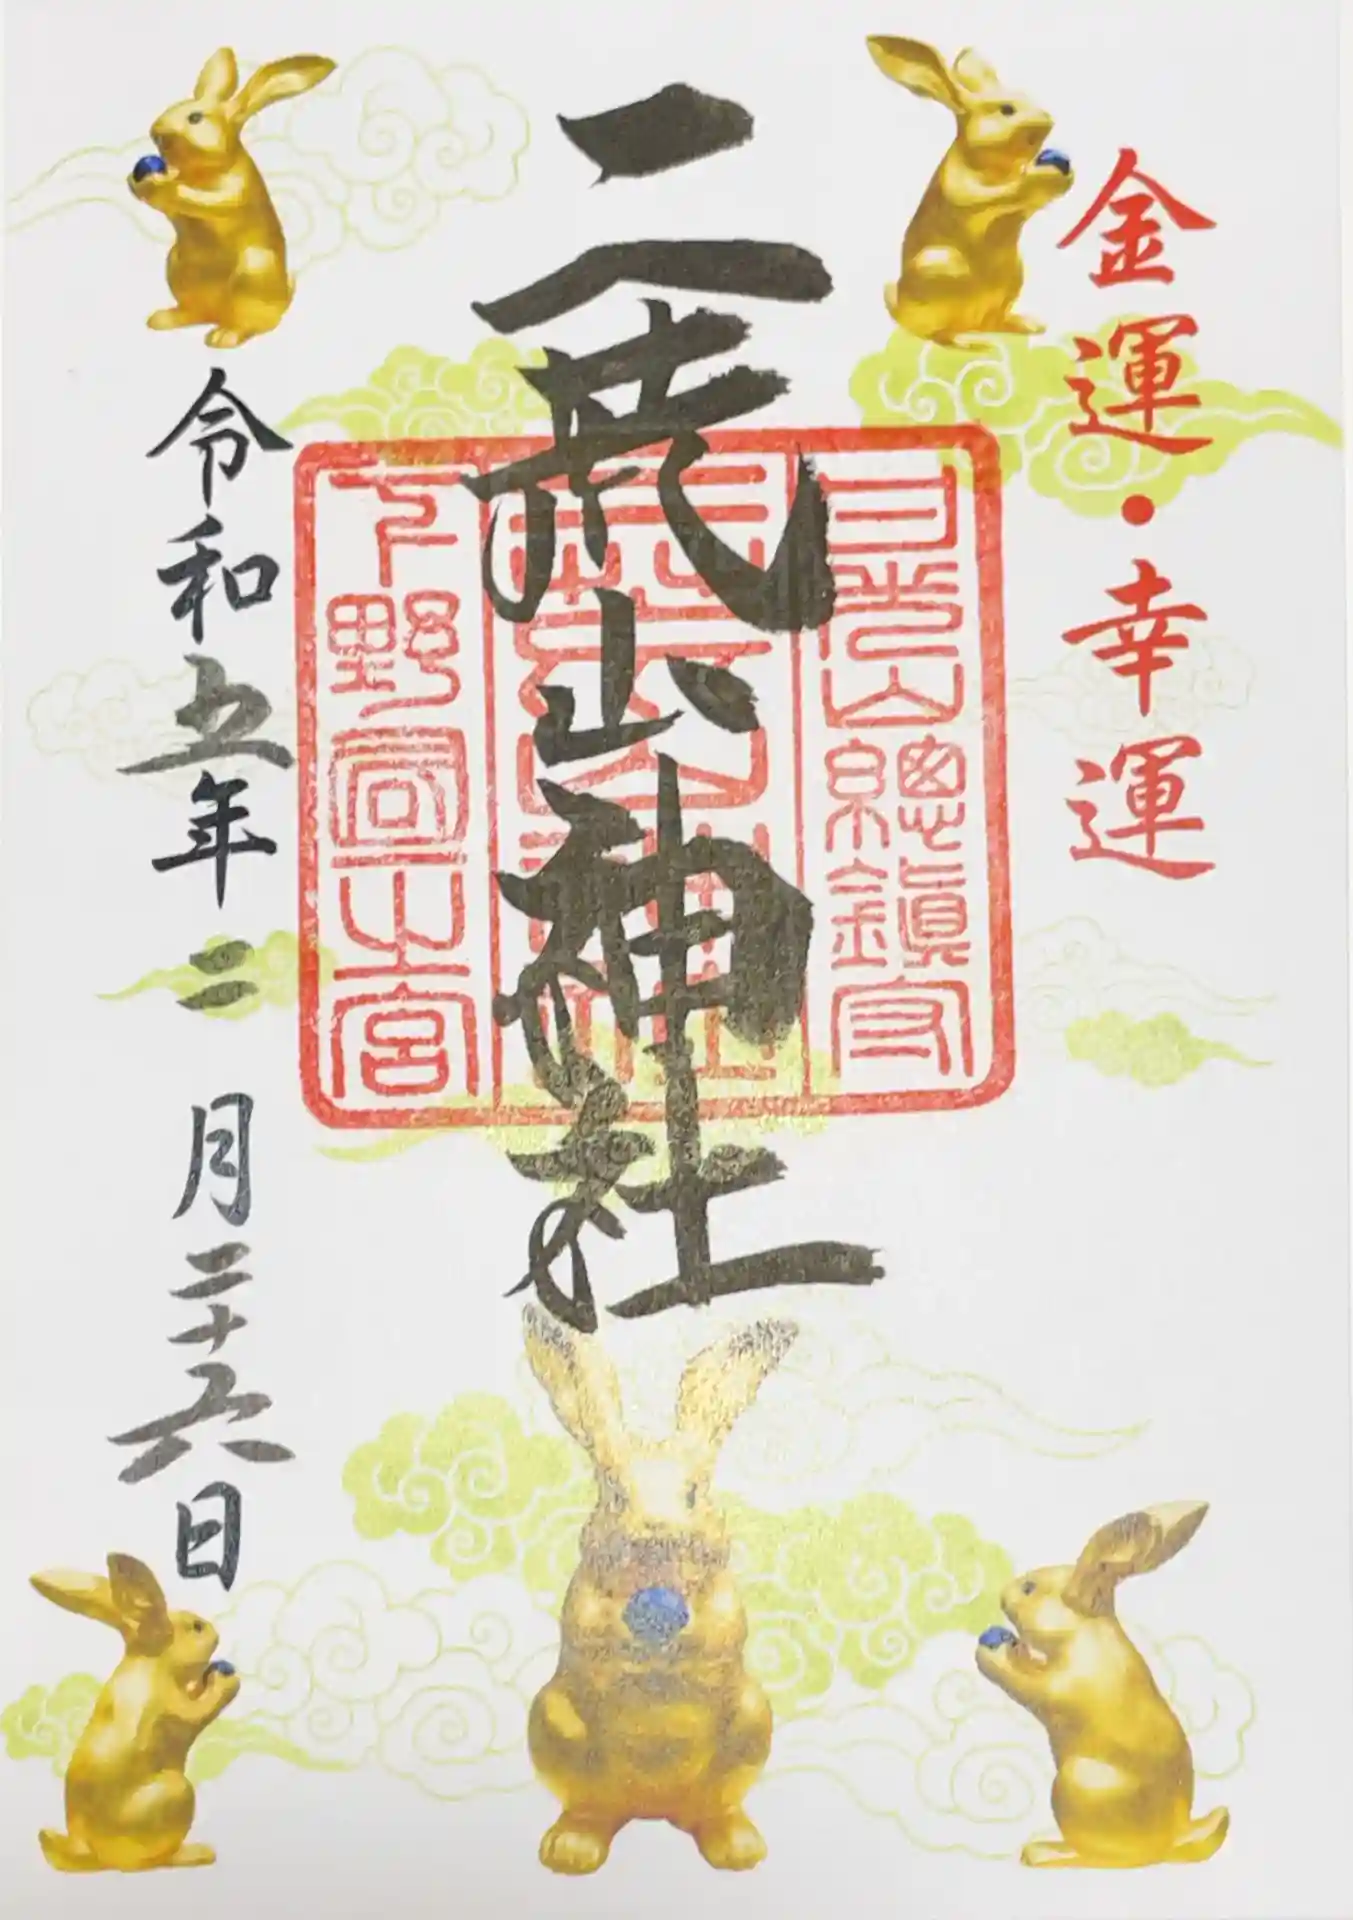 金運・幸運
二荒山神社
日光山總鎮守
下野國一之宮
令和五年二月二十六日